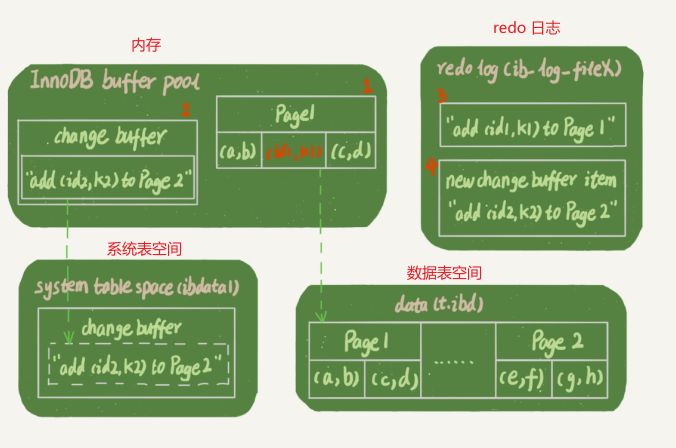 内存
InnoDB buffer pool
2
change buffer
"add (id2,k2) to Page 2"
1
Page1
(a,b)
(id1,k1)
(c,d)
redo 日志
redo log (ib-log-fileX)
3
"add (id1,k1) to Page 1"
4
new change buffer item
"add (id2,k2) to Page 2"
系统表空间
system table space (ibdata1)
change buffer
"add (id2,k2) to Page 2"
数据表空间
data (t.ibd)
Page1
(a,b)
(c,d)
......
Page 2
(e,f)
(g,h)